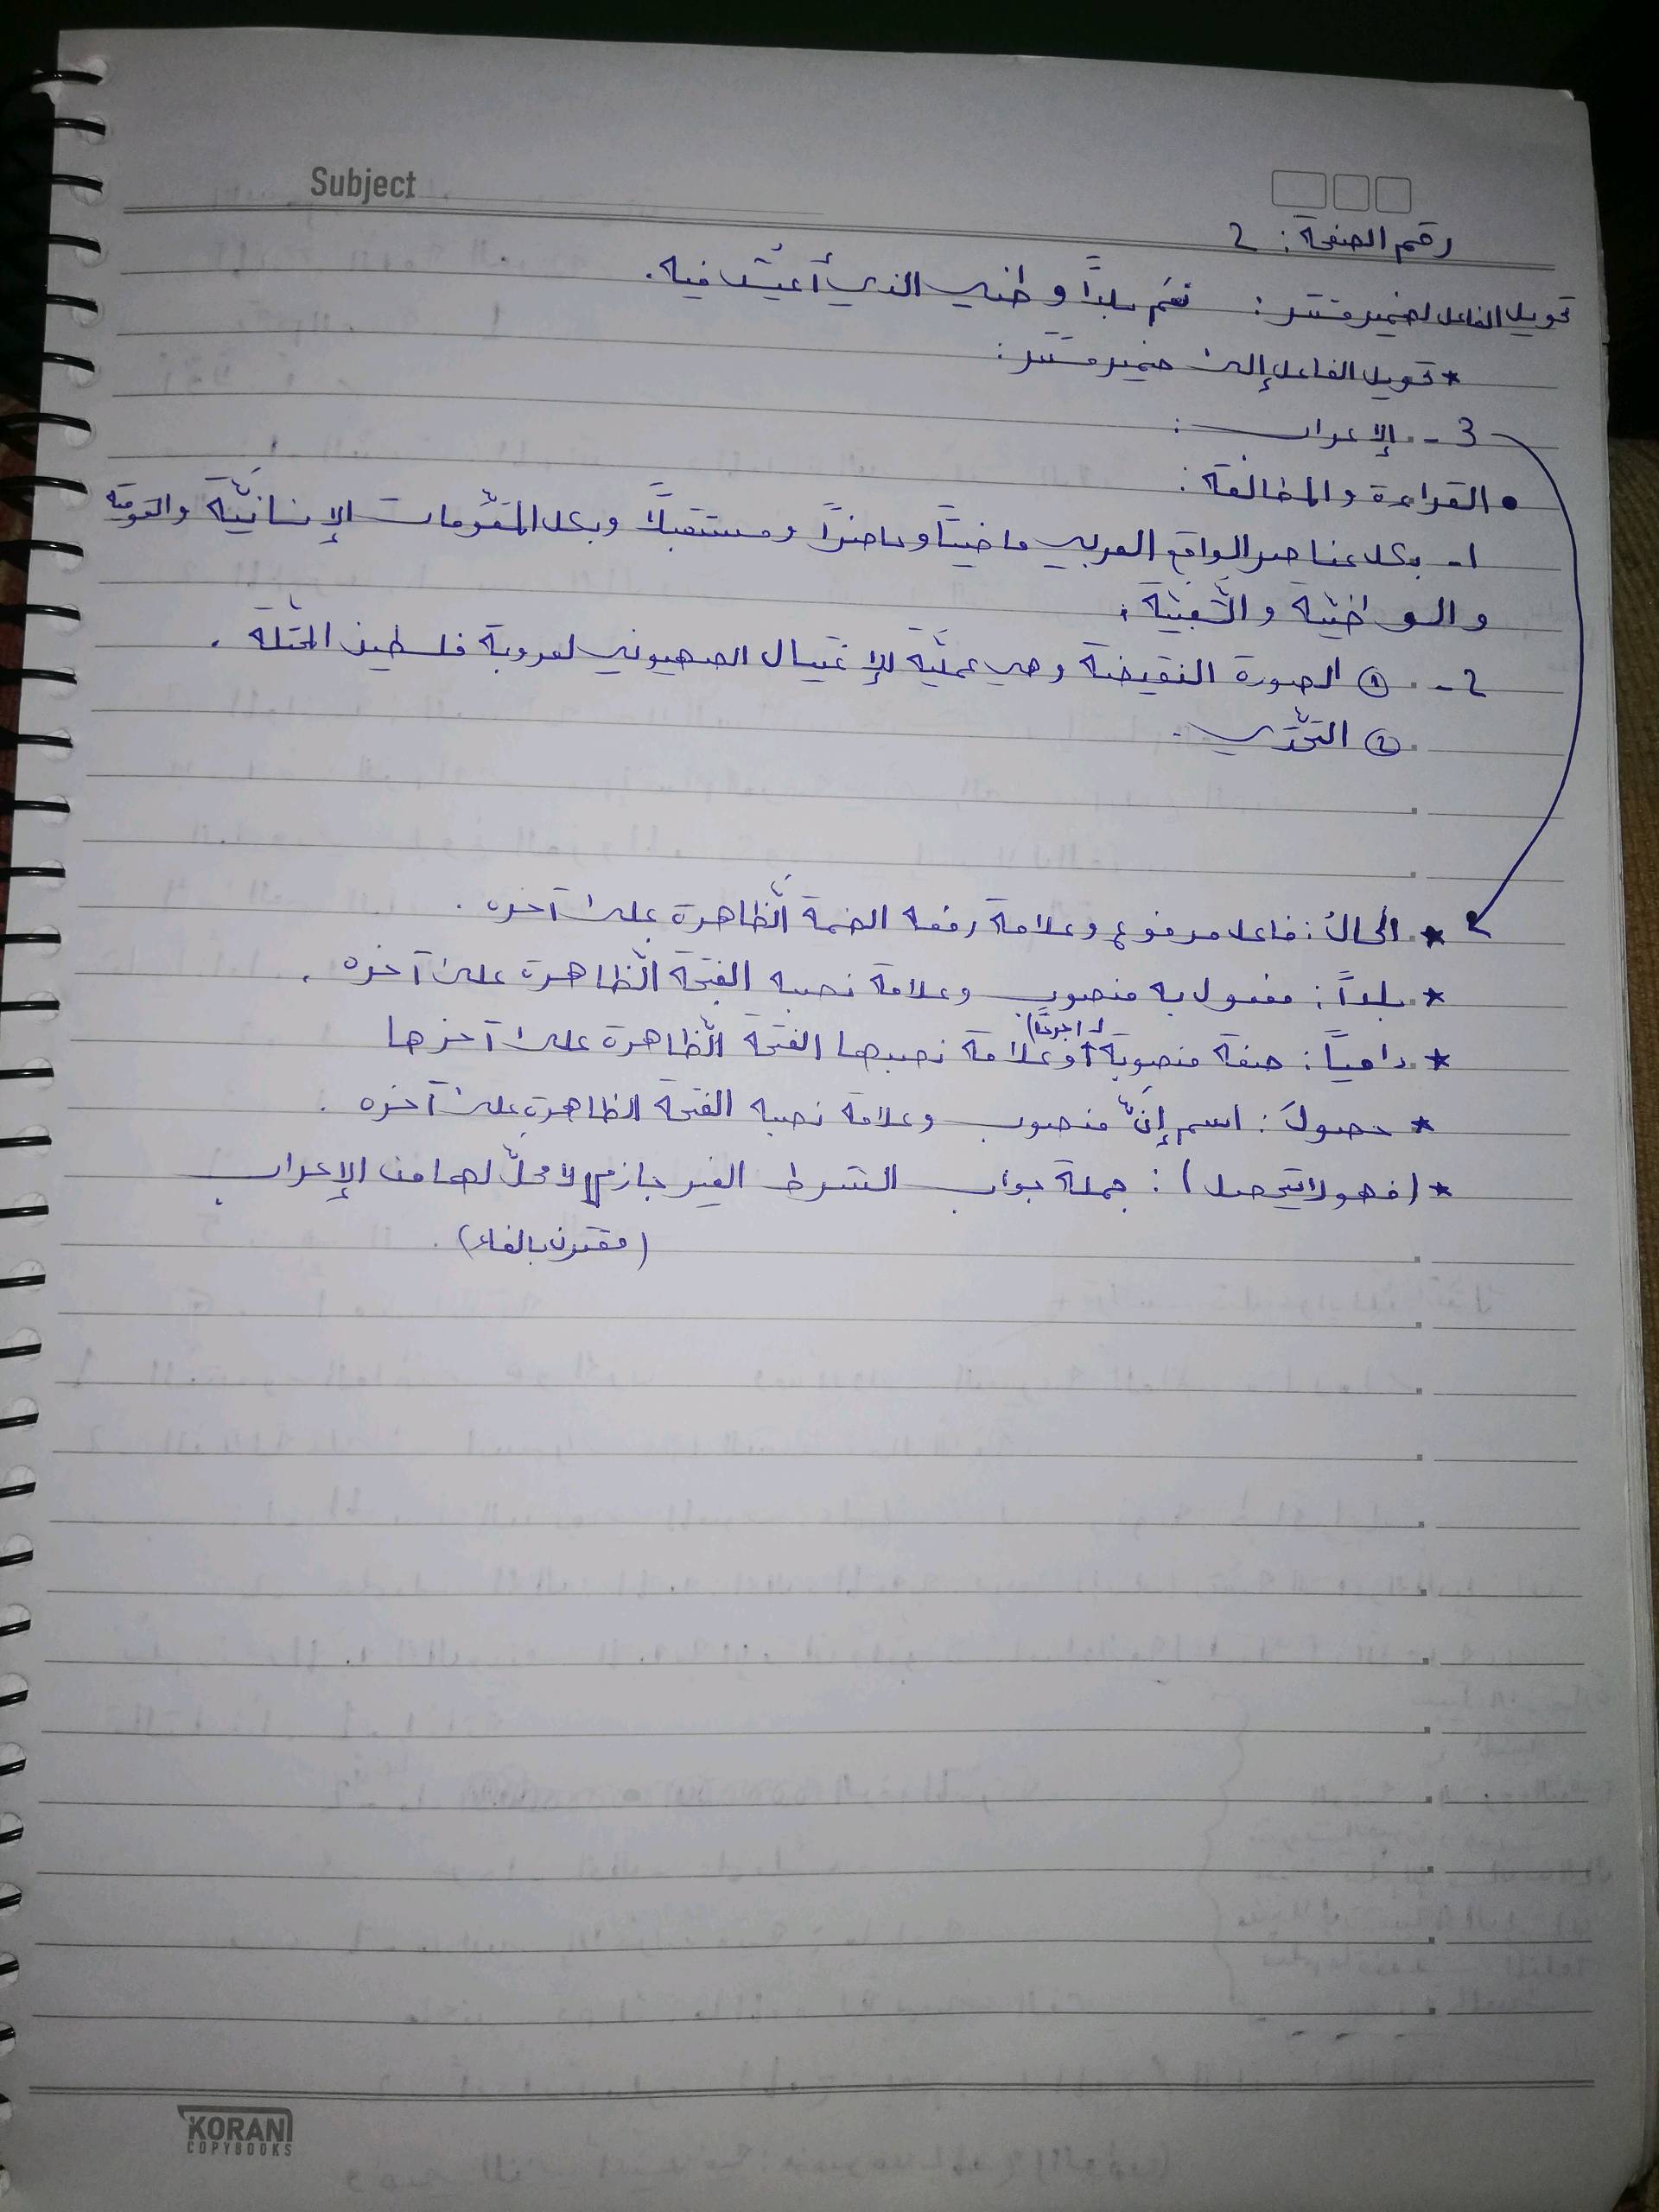 Subject
رقم الصفحة: 2
تحويل الفاعل لضمير مستتر: نعْمَ بلداً وطني الذي أعيشُ فيه.
* تحويل الفاعل إلى ضمير مستتر:
3 - الإعراب:
• القراءة والمطالعة:
1- بكل عناصر الواقع العربي ماضيًا وحاضرًا ومستقبلًا وبكل المقوّمات الإنسانيّة والقوميّة
والوطنيّة والشعبيّة.
2- ① الصورة النقيضة وهي عمليّة للإغتيال الصهيوني لعروبة فلسطين المحتلّة.
② التحدّي.
* الحالُ: فاعل مرفوع وعلامة رفعه الضمة الظّاهرة على آخره.
* بلداً: مفعول به منصوب وعلامة نصبه الفتحة الظّاهرة على آخره.
* دامياً: صفة منصوبة وعلامة نصبها الفتحة الظّاهرة على آخرها
* حصولَ: اسم إنَّ منصوب وعلامة نصبه الفتحة الظاهرة على آخره.
* (فهو لا يتحصل): جملة جواب الشرط الغير جازم لا محلّ لها من الإعراب
(مقترن بالفاء).
KORAN
COPYBOOKS